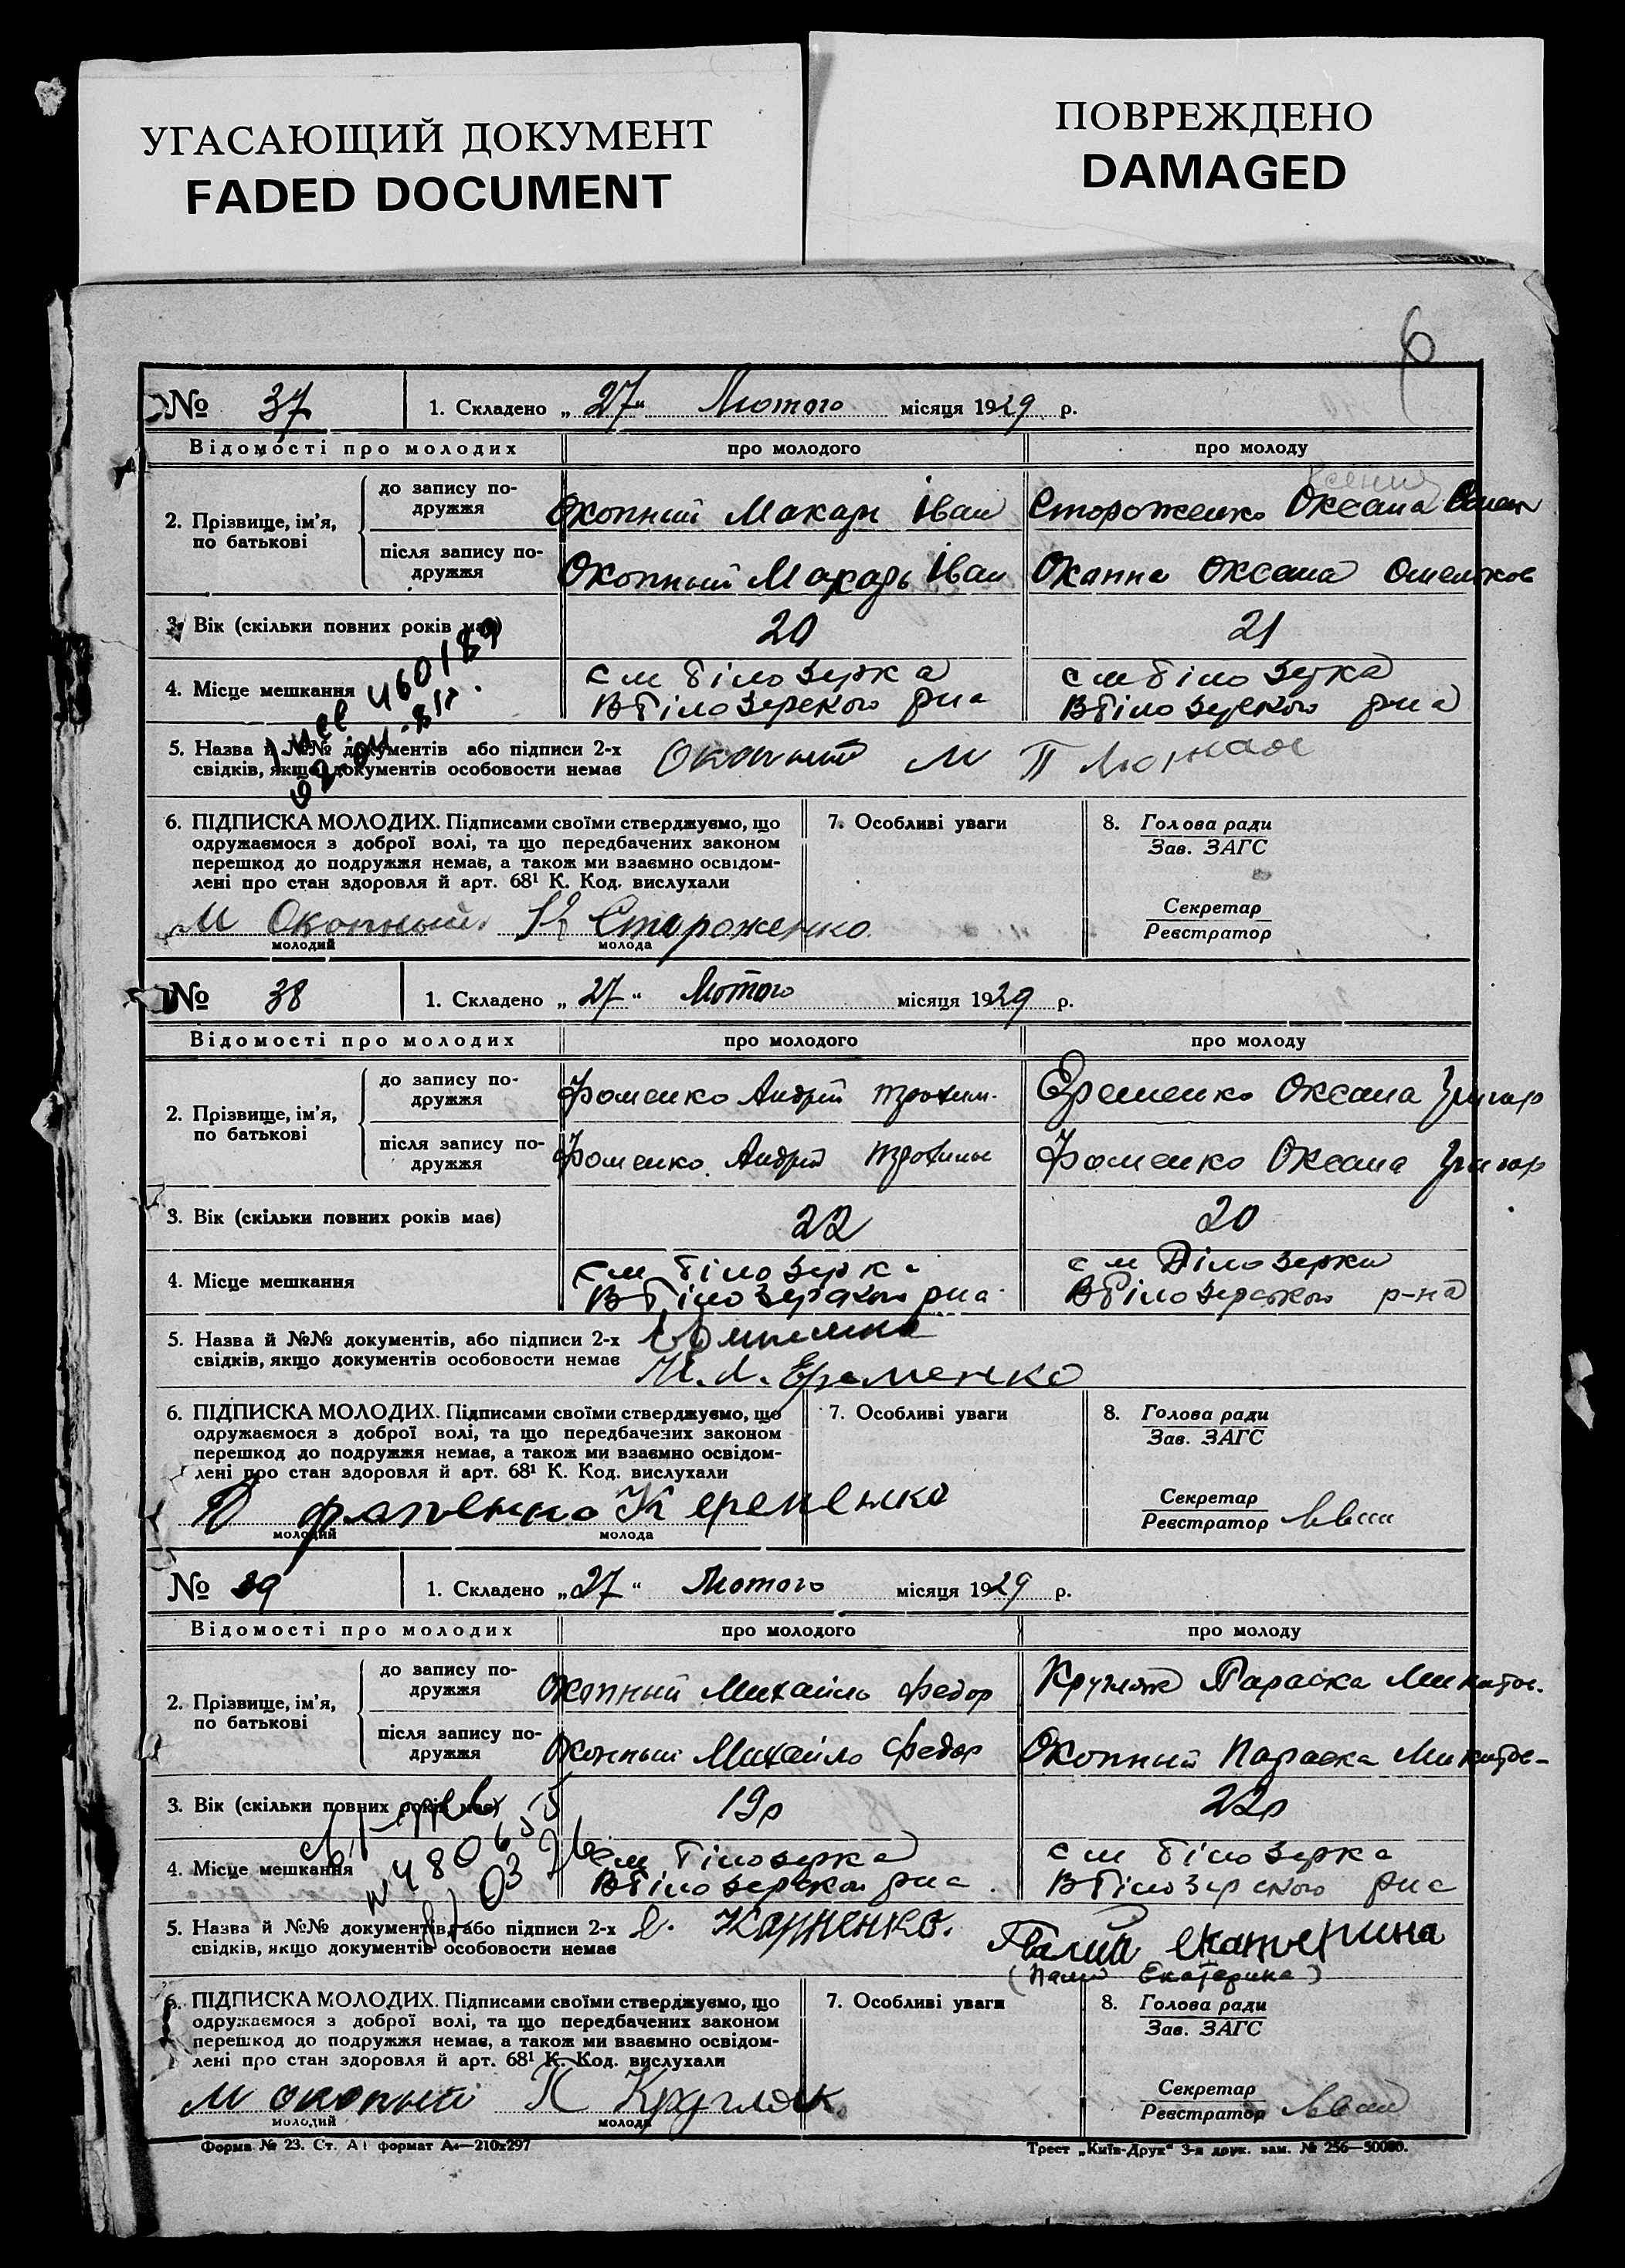 УГАСАЮЩИЙ ДОКУМЕНТ
FADED DOCUMENT
ПОВРЕЖДЕНО
DAMAGED
6
№ 37 1. Складено „ 27 “ Лютого місяця 1929 р.
Відомості про молодих про молодого про молоду
2. Прізвище, ім'я, по батькові
до запису подружжя Окопный Макарь Іван Стороженко Оксана
після запису подружжя Окопный Макарь Іван Оксана Омельков
3. Вік (скільки повних років має) 20 21
4. Місце мешкання см Білозерка см Білозерка
ВБілозерского рна ВБілозерского рна
460189
5. Назва й №№ документів або підписи 2-х
свідків, якщо документів особовости немає Окопный М П
6. ПІДПИСКА МОЛОДИХ. Підписами своїми стверджуємо, що
одружаємося з доброї волі, та що передбачених законом
перешкод до подружжя немає, а також ми взаємно освідом-
лені про стан здоровля й арт. 68¹ К. Код. вислухали
7. Особливі уваги
8. Голова ради
Зав. ЗАГС
Секретар
Реєстратор
М Окопный К Стороженко
молодий молода
№ 38 1. Складено „ 27 “ Лютого місяця 1929 р.
Відомості про молодих про молодого про молоду
2. Прізвище, ім'я, по батькові
до запису подружжя Фоменко Андрій Трохим. Єременко Оксана Григор
після запису подружжя Фоменко Андрій Трохимов Фоменко Оксана Григор
3. Вік (скільки повних років має) 22 20
4. Місце мешкання см Білозерка см Білозерка
ВБілозерского рна ВБілозерского р-на
5. Назва й №№ документів, або підписи 2-х
свідків, якщо документів особовости немає
Еременко
6. ПІДПИСКА МОЛОДИХ. Підписами своїми стверджуємо, що
одружаємося з доброї волі, та що передбачених законом
перешкод до подружжя немає, а також ми взаємно освідом-
лені про стан здоровля й арт. 68¹ К. Код. вислухали
7. Особливі уваги
8. Голова ради
Зав. ЗАГС
Секретар
Реєстратор
фоменко К еременко
молодий молода
№ 39 1. Складено „ 27 “ Лютого місяця 1929 р.
Відомості про молодих про молодого про молоду
2. Прізвище, ім'я, по батькові
до запису подружжя Окопный Михайло Федор Кругляк Параска Микитов.
після запису подружжя Окопный Михайло Федор Окопный Параска Микитов-
3. Вік (скільки повних років має) 19р 22р
4. Місце мешкання см Білозерка см Білозерка
ВБілозерского рна ВБілозерского рна
5. Назва й №№ документів, або підписи 2-х
свідків, якщо документів особовости немає Карпенко. Палий екатерина
(Палий Екатерина)
6. ПІДПИСКА МОЛОДИХ. Підписами своїми стверджуємо, що
одружаємося з доброї волі, та що передбачених законом
перешкод до подружжя немає, а також ми взаємно освідом-
лені про стан здоровля й арт. 68¹ К. Код. вислухали
7. Особливі уваги
8. Голова ради
Зав. ЗАГС
Секретар
Реєстратор
М окопный П Кругляк
молодий молода
Форма № 23. Ст. А1 формат А4—210х297
Трест „Київ-Друк“ 3-я друк. зам. № 256—50000.